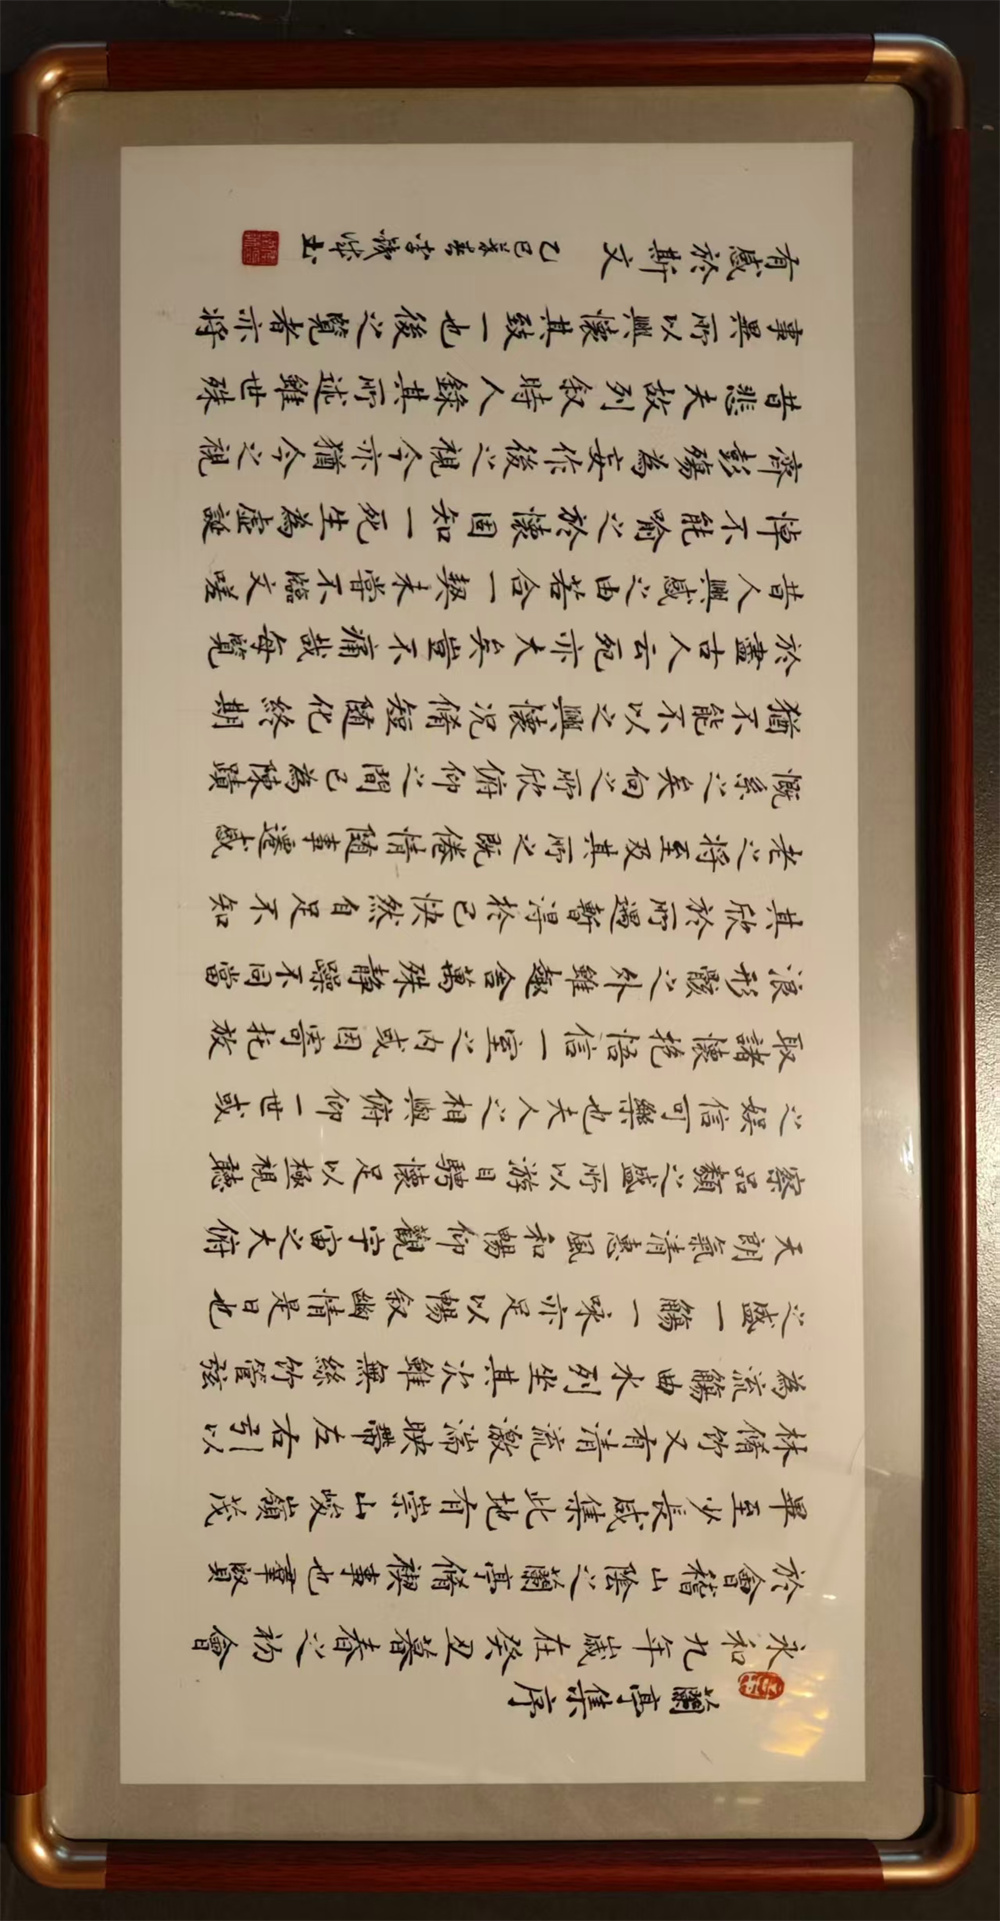 蘭亭集序
永和九年歲在癸丑暮春之初會
於會稽山陰之蘭亭脩禊事也羣賢
畢至少長咸集此地有崇山峻領茂
林脩竹又有清流激湍映帶左右引以
為流觴曲水列坐其次雖無絲竹管弦
之盛一觴一咏亦足以暢叙幽情是日也
天朗氣清惠風和暢仰觀宇宙之大俯
察品類之盛所以游目騁懷足以極視聽
之娛信可樂也夫人之相與俯仰一世或
取諸懷抱悟信一室之內或因寄托放
浪形骸之外雖趣舍萬殊靜躁不同當
其欣於所遇暫得於己快然自足不知
老之將至及其所之既倦情隨事遷感
慨系之矣向之所欣俯仰之間已為陳蹟
猶不能不以之興懷況脩短隨化終期
於盡古人云死亦大矣豈不痛哉每覽
昔人興感之由若合一契未嘗不臨文嗟
悼不能喻之於懷固知一死生為虛誕
齊彭殤為妄作後之視今亦猶今之視
昔悲夫故列叙時人錄其所述雖世殊
事異所以興懷其致一也後之覽者亦將
有感於斯文 乙巳 春李 书